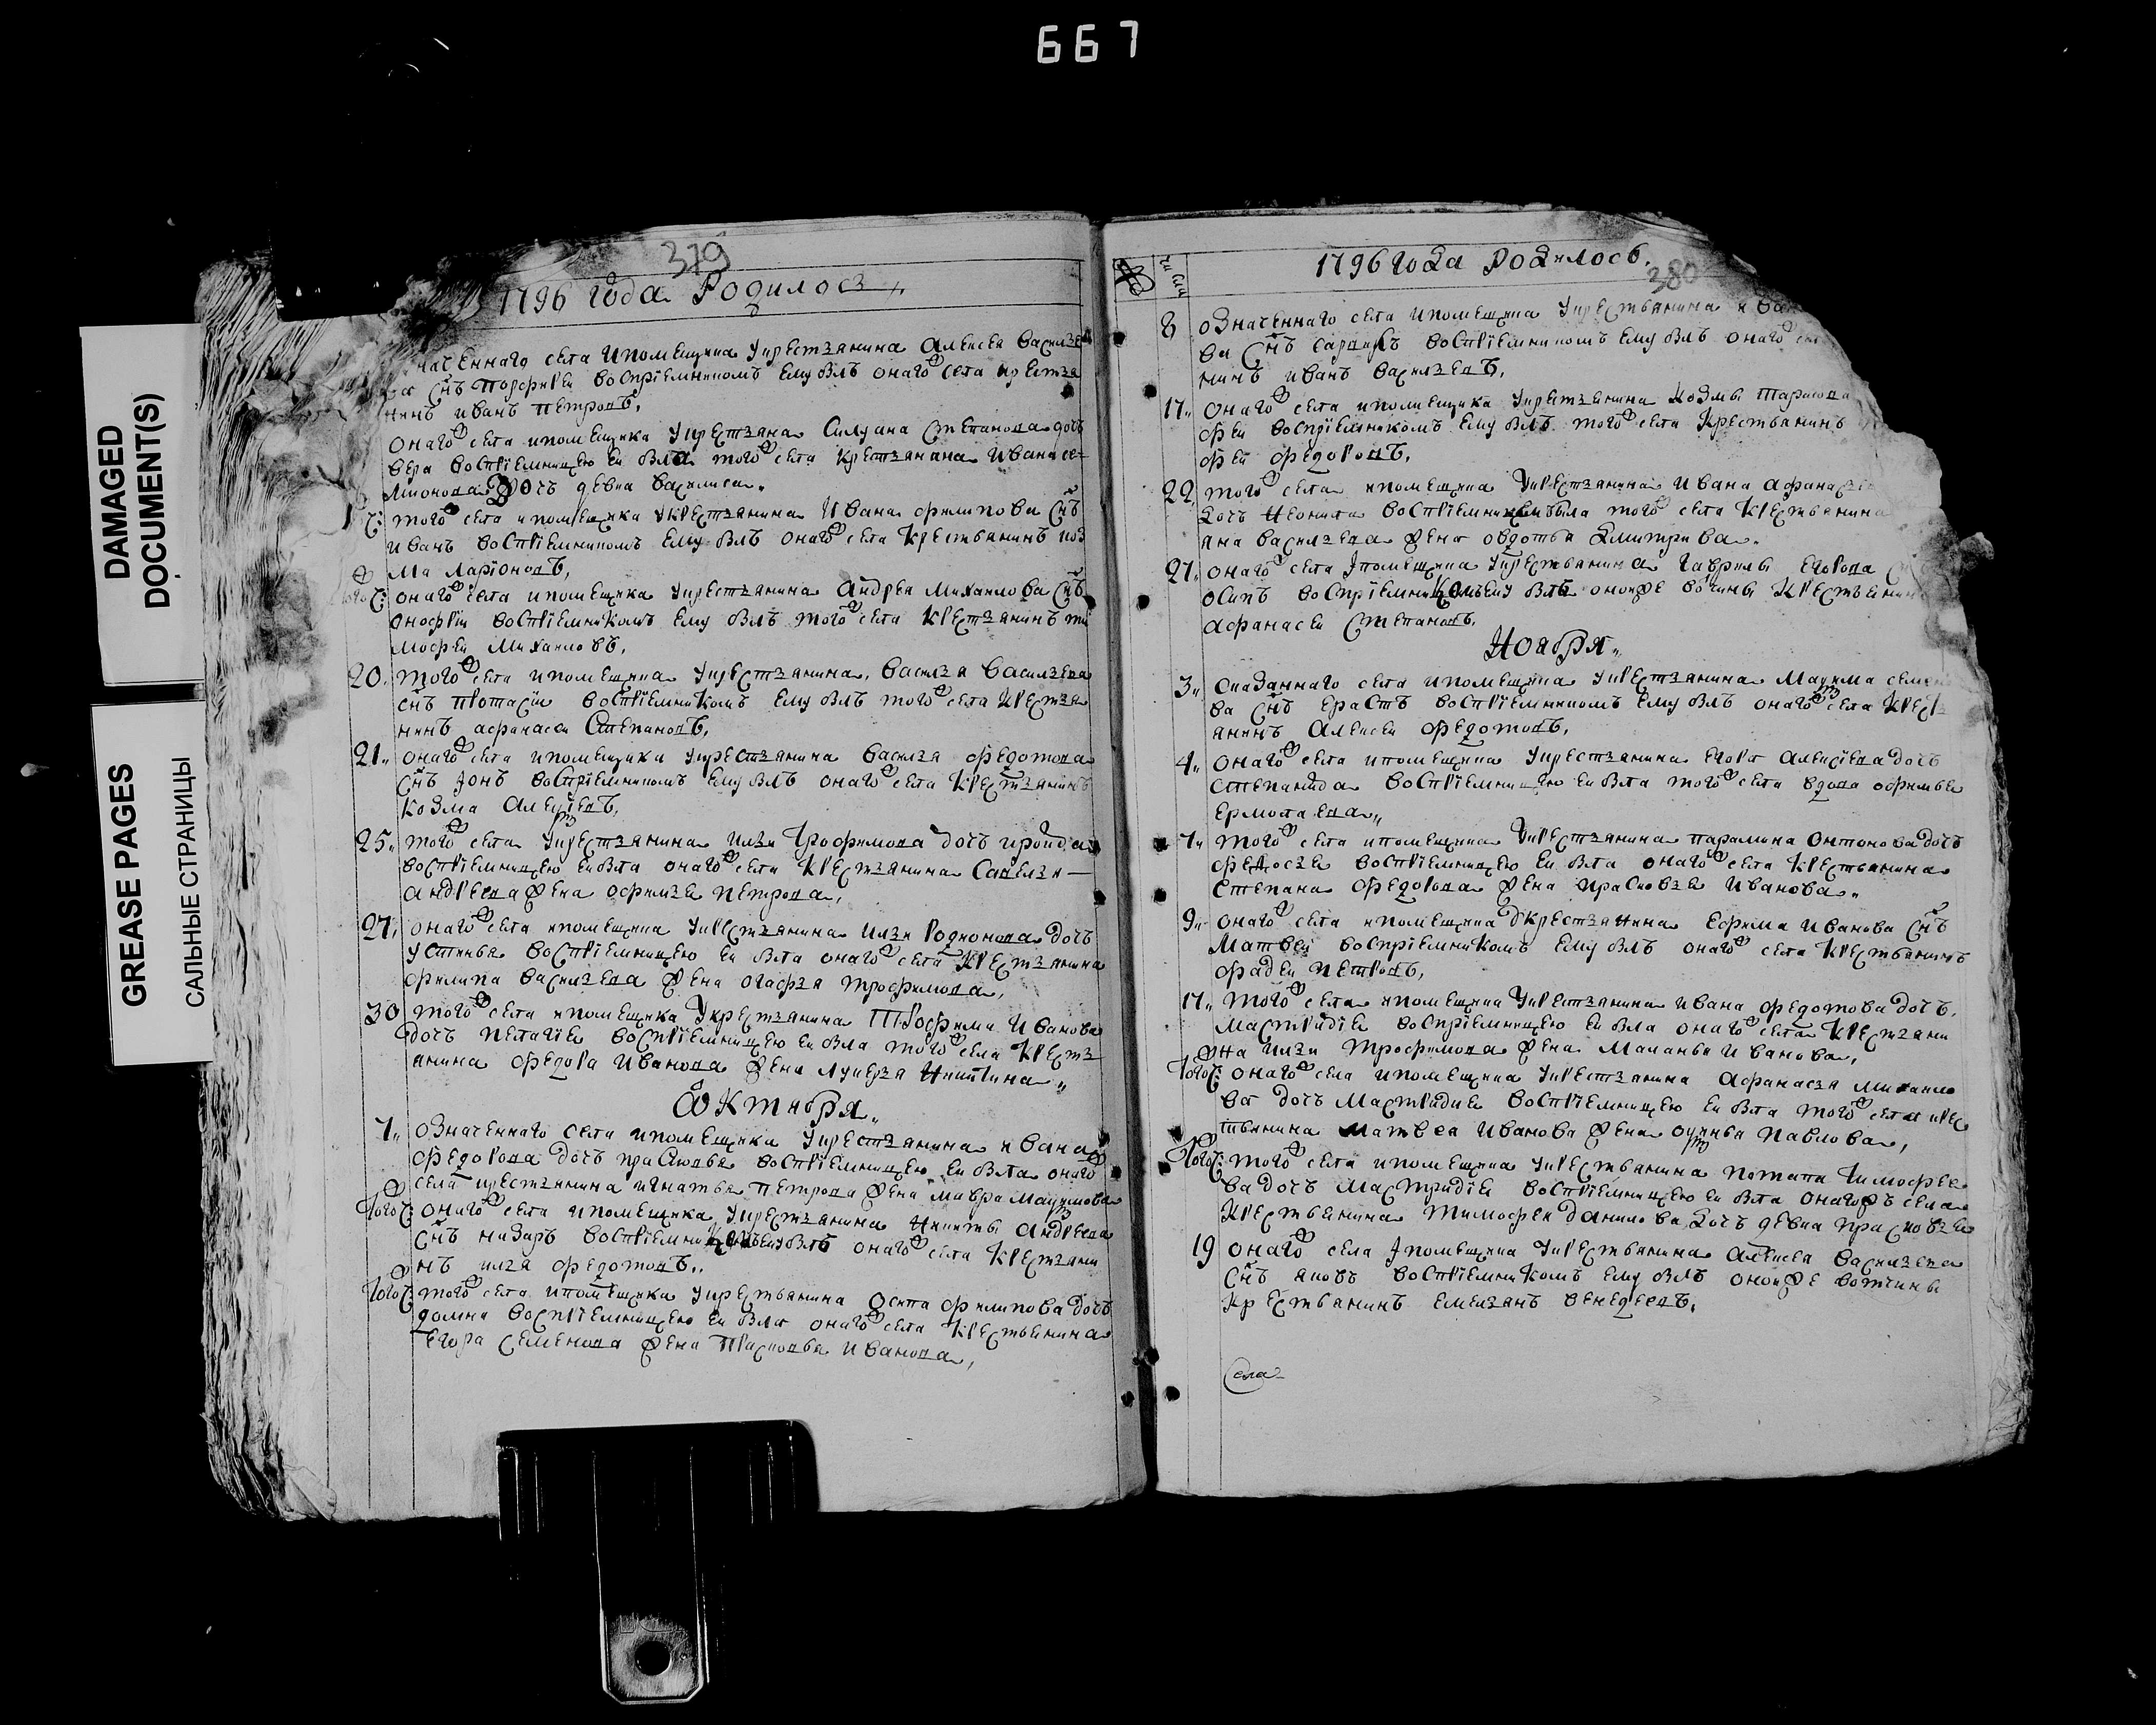 667
DAMAGED
DOCUMENT(S)
GREASE PAGES
САЛЬНЫЕ СТРАНИЦЫ
379
1796 года Родилось
наченнаго села ипомещика укрестьянина Алексея Василье
ва снъ Порфирей воспріемникомъ ему былъ онагожъ села крестья
нинъ иванъ петровъ,
онагожъ села ипомещика укрестьяна Силуана Степанова дочь
вера воспріемницею ей была тогожъ села крестьянина Ивана се-
дочь девка василиса
тогожъ села ипомещика укрестьянина Ивана филипова снъ
иванъ воспріемникомъ ему былъ онагожъ села крестьянинъ коз
ма Ларіоновъ,
тогожъ ч: онагожъ села ипомещика укрестьянина Андрея Михаилова снъ
онофрій воспріемникомъ ему былъ тогожъ села крестьянинъ ти
мофей Михаиловъ.
20. тогожъ села ипомещика укрестьянина, Василья Васильева
снъ протасій воспріемникомъ ему былъ тогожъ села крестья
нинъ афанасей Степановъ,
21. онагожъ села ипомещика укрестьянина Василья федотова
снъ іонъ воспріемникомъ ему былъ онагожъ села крестьянинъ
козма Алексеевъ,
25. тогожъ села укрестьянина ильи трофимова дочь ироида
воспріемницею ей была онагожъ села крестьянина Савелья
андреева жена офимья петрова,
27. онагожъ села ипомещика укрестьянина ильи Родионова дочь
устинья воспріемницею ей была онагожъ села крестьянина
филипа васильева жена огафья трофимова,
30 тогожъ села ипомещика укрестьянина Трофима Иванова
дочь пелагіе воспріемницею ей была тогожъ села кресть
янина федора Иванова жена лукерья Никитина
Октября
1. означеннаго села ипомещика укрестьянина ивана
федорова дочь прасковья воспріемницею ей была онагожъ
села крестьянина игнатья петрова жена мавра максимова
тогожъ ч: онагожъ села ипомещика укрестьянина Никиты Андреева
снъ назаръ воспріемникомъ ему былъ онагожъ села крестьяни
нъ илья федотовъ.
тогожъ ч: тогожъ села ипомещика укрестьянина Осипа филипова дочь
домна воспріемницею ей была онагожъ села крестьянина
Егора Семенова жена Прасковья Иванова,
1796 года Родилось.
380
8 означеннаго села ипомещика укрестьянина
ва снъ воспріемникомъ ему былъ онагожъ
нинъ иванъ васильевъ,
17. Онагожъ села ипомещика укрестьянина козмы
фей воспріемникомъ ему былъ тогожъ села крестьянинъ
фей федоровъ.
22. тогожъ села ипомещика укрестьянина Ивана афанасье
дочь Неонила воспріемницею была тогожъ села крестьянина
яна васильева жена овдотья дмитрива.
27. онагожъ села ипомещика укрестьянина гаврилы Егорова
осипъ воспріемникомъ ему былъ оноиже вочины крестьянин
афанасеи Степановъ.
Ноября
3. сказаннаго села ипомещика укрестьянина Максима семено
ва снъ Ерастъ воспріемникомъ ему былъ онагожъ села крестъ
янинъ Алексеи федотовъ.
4. онагожъ села ипомещика укрестьянина Егора алексіева дочь
степанида воспріемницею ей была тогожъ села вдова офимья
Ермолаева
7. тогожъ села ипомещика укрестьянина парамона Онтонова дочь
федосья воспріемницею ей была онагожъ села крестьянина
Степана федорова жена прасковья Иванова
9. онагожъ села ипомещика укрестьянина Ефима Иванова снъ
Матвей воспріемникомъ ему былъ онагожъ села крестьянинъ
фадеи петровъ,
17. тогожъ села ипомещика укрестьянина ивана федотова дочь
Мастридія воспріемницею ей была онагожъ села крестьяни
на ильи трофимова жена Маланья Иванова,
тогожъ ч: онагожъ села ипомещика укрестьянина Афанасья Михаило
ва дочь Мастридія воспріемницею ей была тогожъ села крес
тьянина Матвея Иванова жена Павлова,
тогожъ ч: тогожъ села ипомещика укрестьянина потапа тимофее
ва дочь Мастридія воспріемницею ей была онагожъ села
крестьянина тимофея данилова, дочь девка прасковья
19 онагожъ села ипомещика укрестьянина алексея васильева
снъ яковъ воспріемникомъ ему былъ оноиже вотчины
крестьянинъ емельянъ
Села